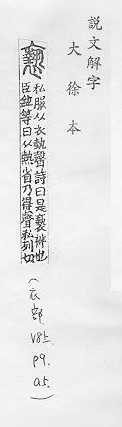 說文解字
大徐本
褻
私服从衣埶聲詩曰是褻袢也
臣鉉等曰从熱省乃得聲私列切
(衣部 V8上. P9. a5.)